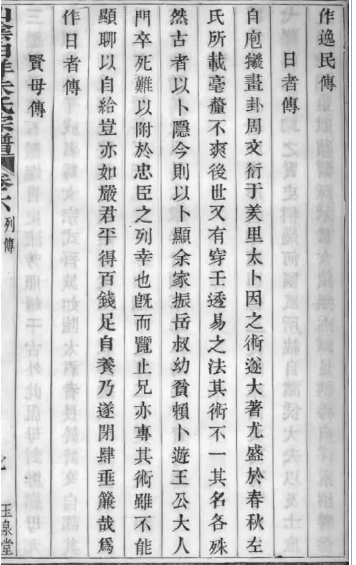 作逸民傳
日者傳
自庖犧畫卦周文衍于羑里太卜因之術遂大著尤盛於春秋左
氏所載毫釐不爽後世又有穿壬透易之法其術不一其名各殊
然古者以卜隱今則以卜顯余家振岳叔幼貧賴卜遊王公大人
門卒死難以附於忠臣之列幸也旣而覽止兄亦專其術雖不能
顯聊以自給豈亦如嚴君平得百錢足自養乃遂閉肆垂簾哉爲
作日者傳
賢母傳
白洋朱氏宗譜
卷六
列傳
玉泉堂